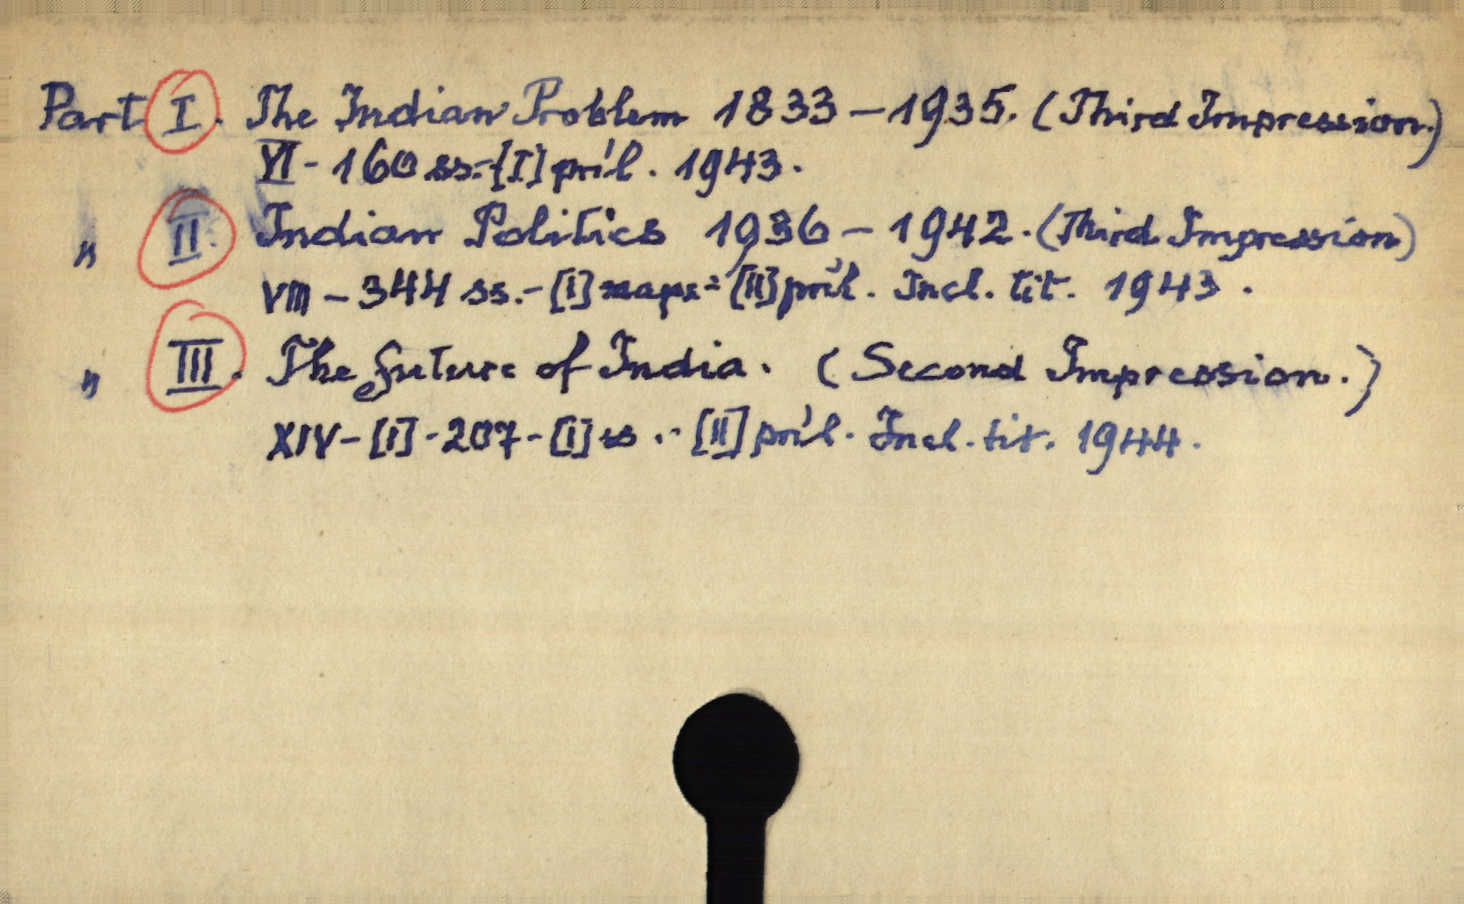 Part I. The Indian Problem 1833-1935. (Third Impression.)
VI - 160 ss.-[I] príl. 1943.
" II. Indian Politics 1936-1942. (Third Impression)
VIII - 344 ss.-[I] maps-[II] príl. Incl. tit. 1943.
" III. The future of India. (Second Impression.)
XIV-[I]-207-[I] ss.-[II] príl. Incl. tit. 1944.